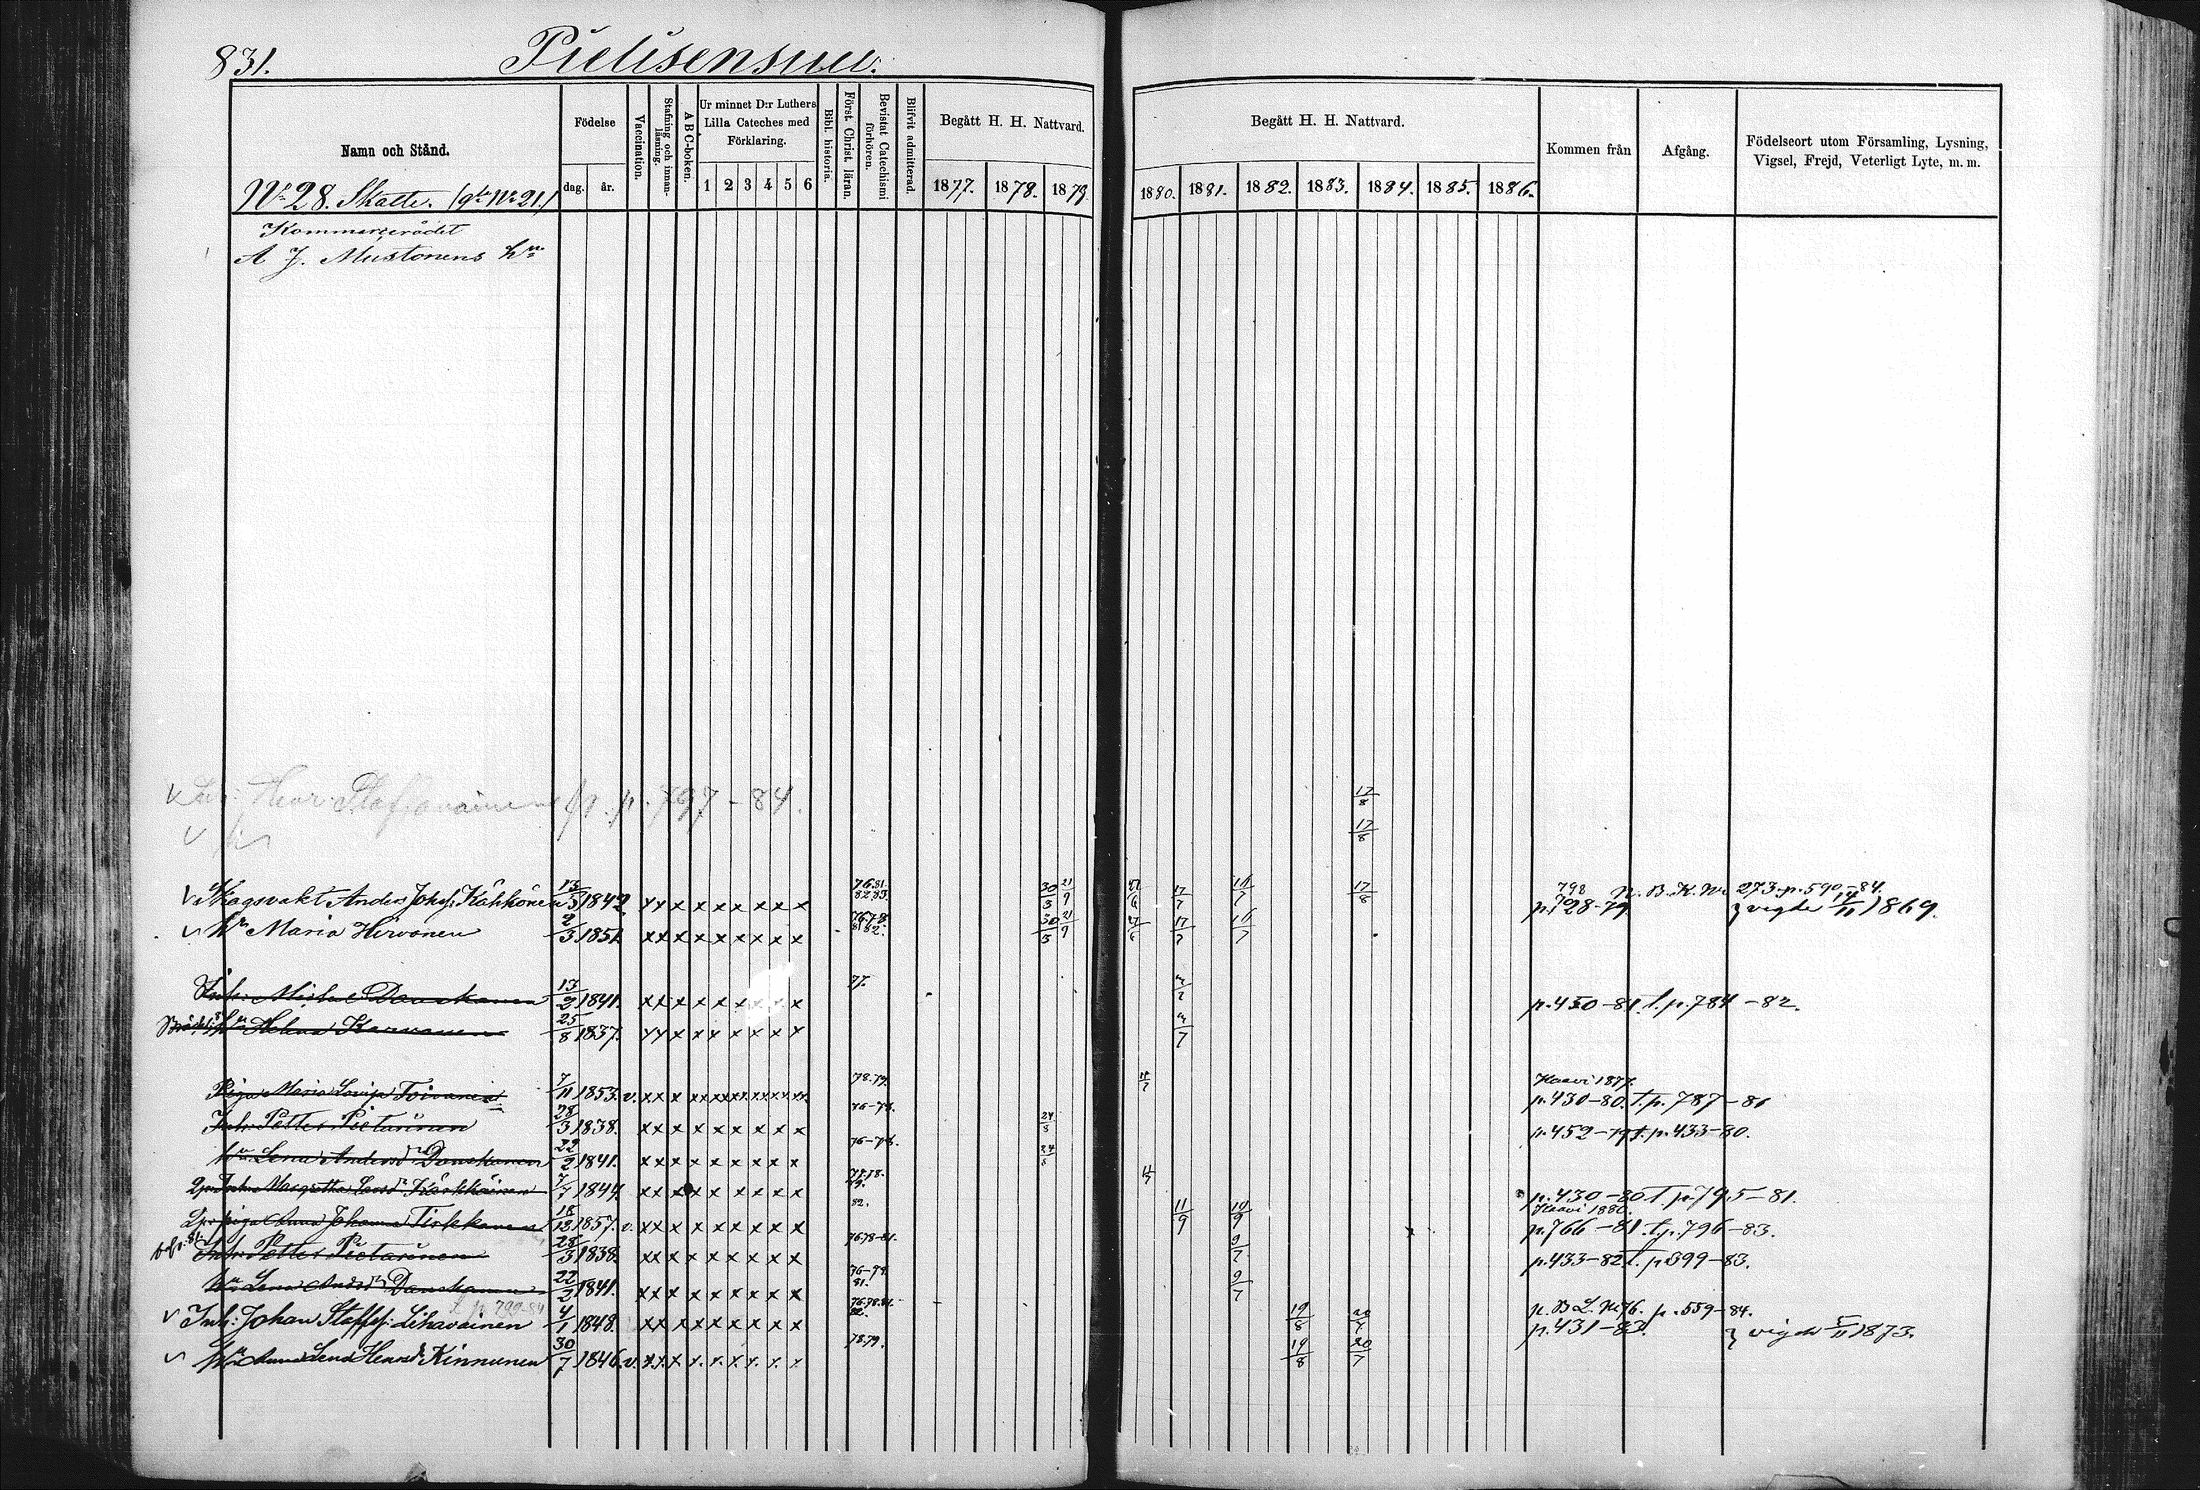 831. Pielisensuu.
Namn och Stånd.
Födelse
dag. år.
Vaccination.
Stafning och innan-läsning.
A B C-boken.
Ur minnet D:r Luthers Lilla Cateches med Förklaring.
1 2 3 4 5 6
Bibl. historia.
Först. Christ. läran.
Bevistat Catechismi förhören.
Blifvit admitterad.
Begått H. H. Nattvard.
1877. 1878. 1879
Begått H. H. Nattvard.
1880. 1881. 1882. 1883. 1884. 1885. 1886.
Kommen från
Afgång.
Födelseort utom Församling, Lysning, Vigsel, Frejd, Veterligt Lyte, m. m.
No 28. Skatte. (gla No 21.)
Kommerserådet
A J. Mustonens hu
p. 797-84. 17/8
17/8
Skogsvakt Anders Johs: Kähkönen 1842 x x x x x x x x x 30/3 21/9 17/7 16/7 17/8 798 p. 728-79 273. p. 590-84.
hu Maria Hirvonen 2/3 1851 x x x x x x x x x 30/3 21/9 17/7 16/7 vigde 14/11 1869.
Inh: Michel Danskanen 13/2 1841. x x x x x x x x 77. p. 450-81. t. p. 784-82.
hu Helena Karvonen 25/8 1837. x x x x x x x x x
Piga Maria Lovisa Toivanen 7/11 1853. v. 78.79. Kaavi 1877. p. 430-80. t. p. 787-81
Inh: Petter Pietarinen 28/3 1838. x x x x x x x x x 76-78. 24/8 p. 452-79 t. p. 433-80.
hu Lena Andersdr Danskanen 22/2 1841. x x x x x x x x x 76-78. 24/8
Inh: Margretha Larsdr Kärkkäinen 7/7 1844. x x x x x x x x p. 430-80 t. p. 795-81.
piga Anna Johanna Tirkkonen 18/12 1857. v. x x x x x x x x x 82. 11/9 10/9 Kaavi 1880. p. 766-81. t. p. 796-83.
Inh: Petter Pietarinen 28/3 1838. x x x x x x x x x 76.78-81. 9/7 p. 433-82 t. p. 899-83.
hu Lena Andersdr Danskanen 22/2 1841. x x x x x x x x x 76-79. 81. 9/7
t. p. 799-84
Inh: Johan Staffs: Lihavainen 4/1 1848. x x x x x x x x x 19/8 20/7 p. 431-83. p. 559-84.
hu Anna Lena Henrdr Kinnunen 30/7 1846. v. x x x x x x x x x 78.79. 19/8 20/7 vigde 5/11 1873.